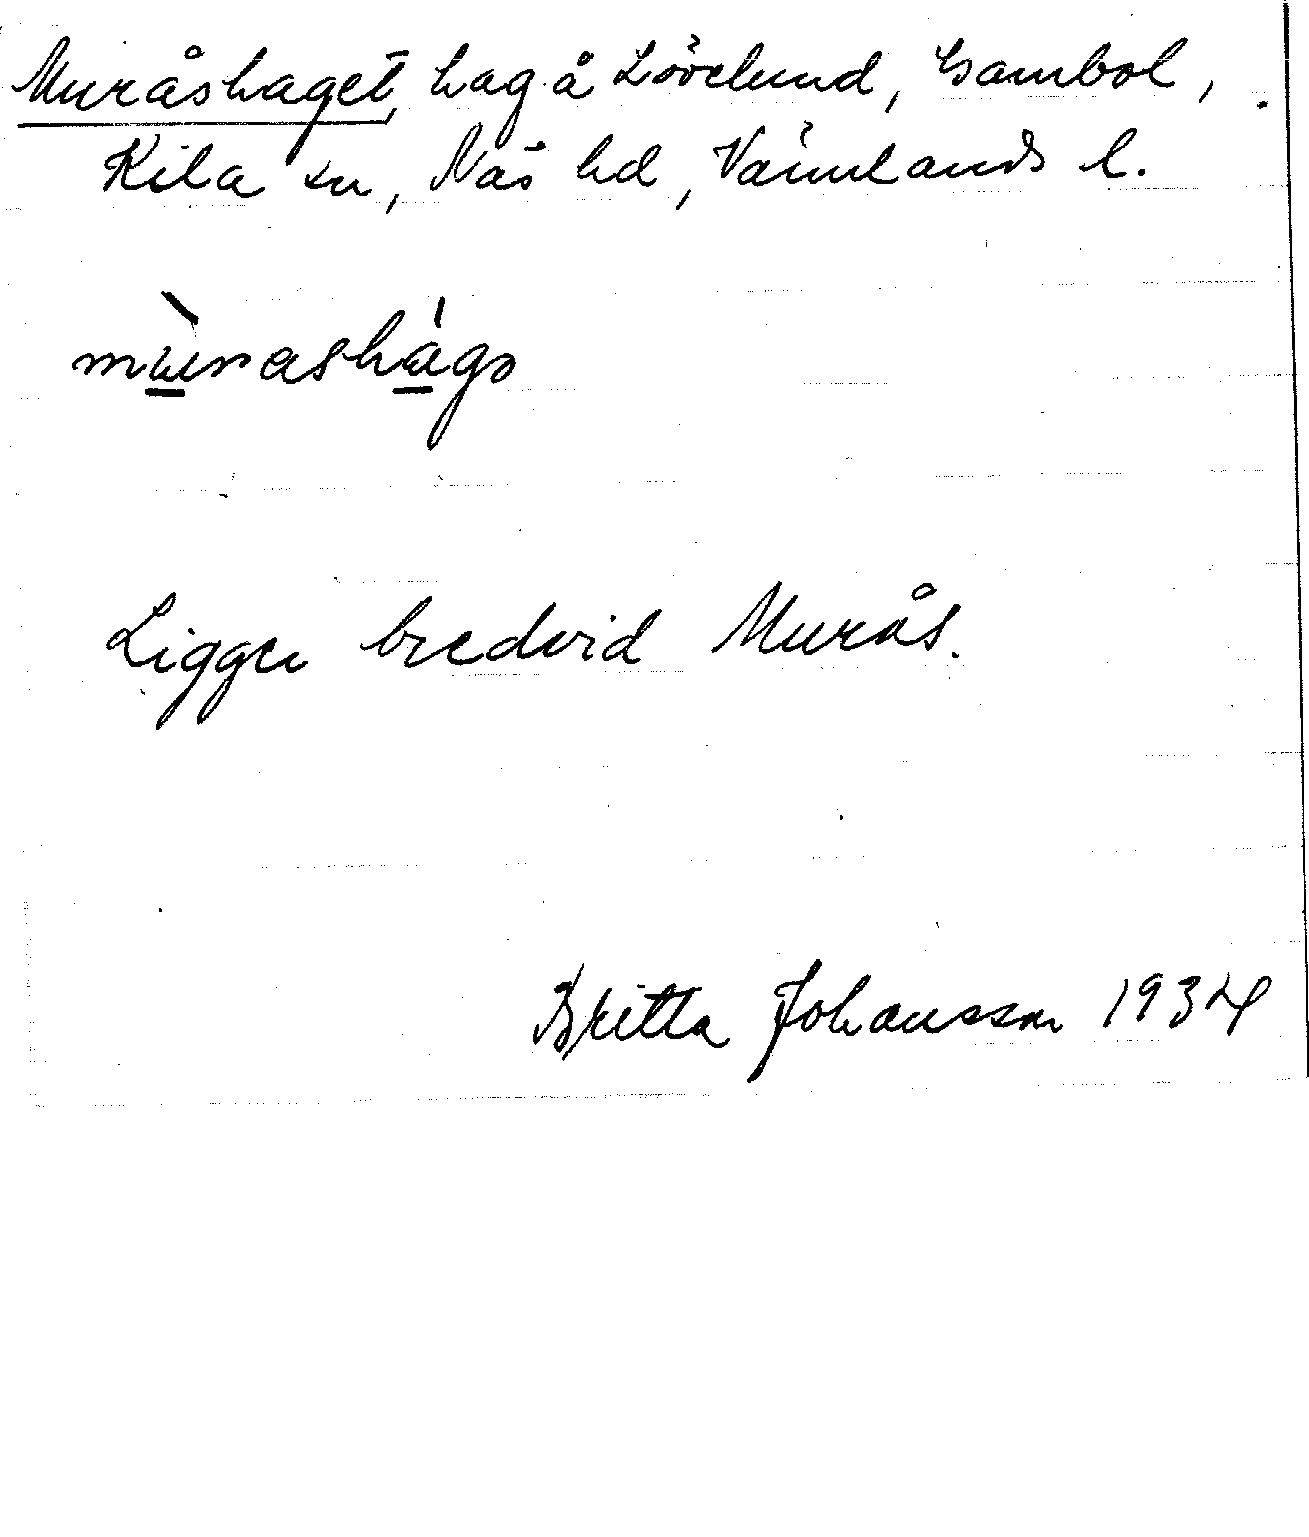 Muråshaget, hag å Lövelund, Gambol,
Kila sn, Näs hd, Värmlands l.
mùrashágə
Ligger bredvid Murås.
Britta Johansson 1934